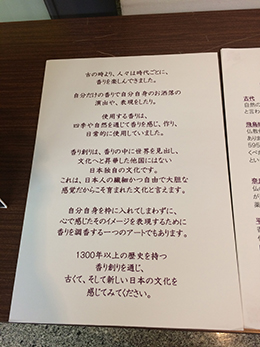 古の時より、人々は時代ごとに、
香りを楽しんできました。
自分だけの香りで自分自身のお洒落の
演出や、表現をしたり。
使用する香りは、
四季や自然を通じて香りを感じ、作り、
日常的に使用していました。
香り創りは、香りの中に世界を見出し、
文化へと昇華した他国にはない
日本独自の文化です。
これは、日本人の繊細かつ自由で大胆な
感覚だからこそ育まれた文化と言えます。
自分自身を枠に入れてしまわずに、
心で感じたそのイメージを表現するために
香りを調香する一つのアートでもあります。
1300年以上の歴史を持つ
香り創りを通じ、
古くて、そして新しい日本の文化を
感じてみてください。
古代
自然の
と言わ
飛鳥時
仏教
595
くべ
か
奈良
仏
薬